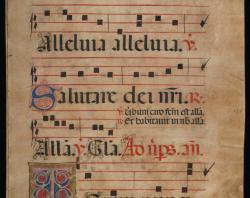 Alleluia alleluia. ℣.
Salutare dei nr̄i. ℟.
℣ Ūbum caro fcm̄ est alla.
℟ Et habitauit in nb̄ alla.
Alla. ℣. Gl̄a. Ad ūps. an̄.